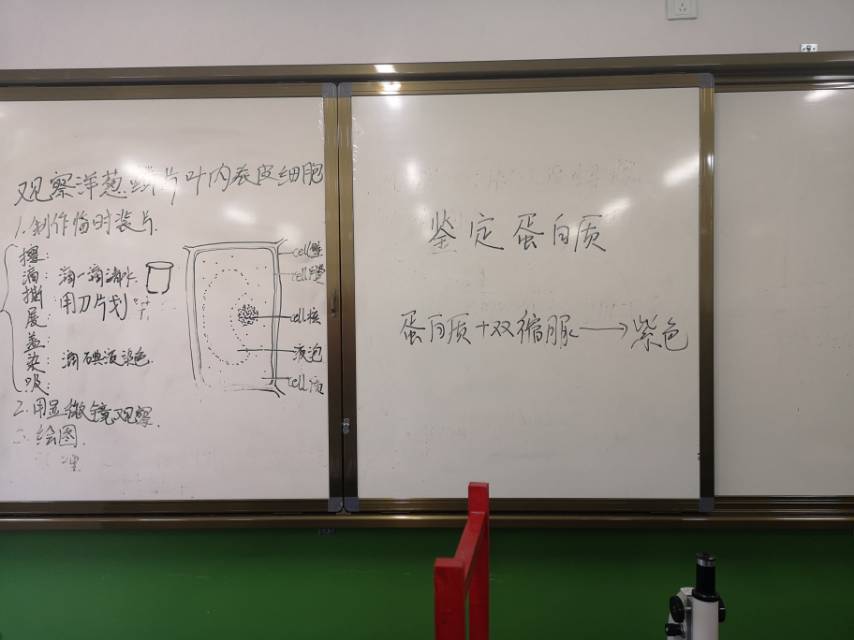 观察洋葱鳞片叶内表皮细胞
1.制作临时装片.
擦:
滴:滴一滴清水.
撕:用刀片划
展:
盖:
染:滴碘液染色.
吸:
2.用显微镜观察.
3.绘图.
cell壁
cell膜
cell核
液泡
cell质
鉴定蛋白质
蛋白质+双缩脲→紫色